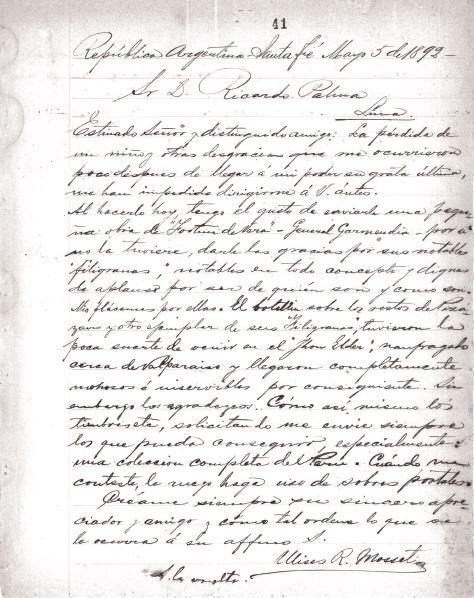 41
República Argentina - Santa Fé Mayo 5 de 1892 -
Sr D. Ricardo Palma
Lima
Estimado Señor y distinguido amigo: La pérdida de
un niño y otras desgracias que me ocurrieron
poco despues de llegar á mi poder su grata última,
me han impedido dirigirme á V. ántes.
Al hacerlo hoy, tengo el gusto de enviarle una peque
ña obra de "Fortun de Vera" - General Garmendia - por si
no la tuviere, darle las gracias por sus notables
filigranas; notables en todo concepto y dignas
de aplauso por ser de quién son y como son.
Mis plácemes por ellas. El boletin sobre los restos de Piza
rro y otro ejemplar de sus "Filigranas", tuvieron la
poca suerte de venir en el "Jhon Elder", naufragado
cerca de Valparaiso y llegaron completamente
mohosos é inservibles por consiguiente. Sin
embargo los agradezco. Cómo asi, mismo los
timbres etª, solicitando me envie siempre
los que pueda conseguir, especialmente:
una coleccion completa del Perú. Cuándo me
conteste, le ruego haga uso de sobres postales.
Créame siempre su sincero apre
ciador y amigo y como tal ordene lo que se
le ocurra á su affmo S.
Ulises R. Mosset
A la vuelta.